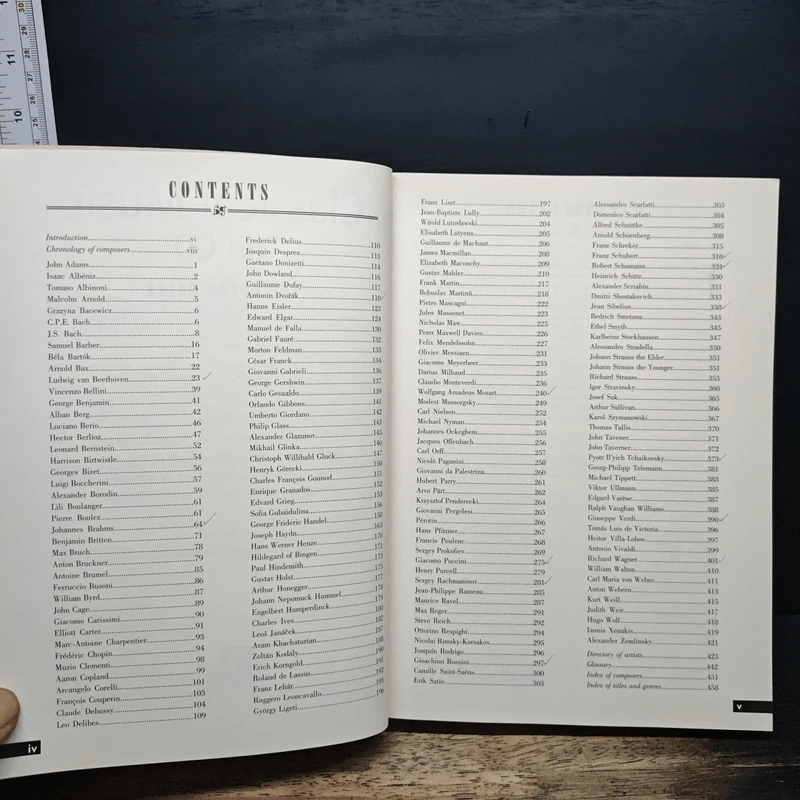 30
29
28
27
26
25
11
10
CONTENTS
Introduction vi
Chronology of composers viii
John Adams 1
Isaac Albéniz 2
Tomaso Albinoni 4
Malcolm Arnold 5
Grazyna Bacewicz 6
C.P.E. Bach 6
J.S. Bach 8
Samuel Barber 16
Béla Bartók 17
Arnold Bax 22
Ludwig van Beethoven 23
Vincenzo Bellini 39
George Benjamin 41
Alban Berg 42
Luciano Berio 46
Hector Berlioz 47
Leonard Bernstein 52
Harrison Birtwistle 54
Georges Bizet 56
Luigi Boccherini 57
Alexander Borodin 59
Lili Boulanger 61
Pierre Boulez 61
Johannes Brahms 64
Benjamin Britten 71
Max Bruch 78
Anton Bruckner 79
Antoine Brumel 85
Ferruccio Busoni 86
William Byrd 87
John Cage 89
Giacomo Carissimi 90
Elliott Carter 91
Marc-Antoine Charpentier 93
Frédéric Chopin 94
Muzio Clementi 98
Aaron Copland 99
Arcangelo Corelli 101
François Couperin 103
Claude Debussy 104
Leo Delibes 109
Frederick Delius 110
Josquin Desprez 113
Gaetano Donizetti 114
John Dowland 116
Guillaume Dufay 117
Antonin Dvořák 118
Hanns Eisler 123
Edward Elgar 124
Manuel de Falla 130
Gabriel Fauré 132
Morton Feldman 133
César Franck 134
Giovanni Gabrieli 136
George Gershwin 137
Carlo Gesualdo 139
Orlando Gibbons 141
Umberto Giordano 142
Philip Glass 143
Alexander Glazunov 145
Mikhail Glinka 146
Christoph Willibald Gluck 147
Henryk Górecki 150
Charles François Gounod 151
Enrique Granados 152
Edvard Grieg 153
Sofia Gubaidulina 156
George Frideric Handel 158
Joseph Haydn 163
Hans Werner Henze 170
Hildegard of Bingen 171
Paul Hindemith 173
Gustav Holst 175
Arthur Honegger 177
Johann Nepomuck Hummel 178
Engelbert Humperdinck 179
Charles Ives 180
Leoš Janáček 182
Aram Khachaturian 187
Zoltán Kodály 188
Erich Korngold 190
Roland de Lassus 191
Franz Lehár 192
Ruggero Leoncavallo 195
György Ligeti 196
iv
Franz Liszt 197
Jean-Baptiste Lully 202
Witold Lutosławski 204
Elisabeth Lutyens 205
Guillaume de Machaut 206
James Macmillan 208
Elizabeth Maconchy 209
Gustav Mahler 210
Frank Martin 217
Bohuslav Martinů 218
Pietro Mascagni 222
Jules Massenet 223
Nicholas Maw 225
Peter Maxwell Davies 226
Felix Mendelssohn 227
Olivier Messiaen 231
Giacomo Meyerbeer 233
Darius Milhaud 235
Claudio Monteverdi 236
Wolfgang Amadeus Mozart 240
Modest Mussorgsky 249
Carl Nielsen 252
Michael Nyman 254
Johannes Ockeghem 255
Jacques Offenbach 256
Carl Orff 257
Nicolò Paganini 258
Giovanni da Palestrina 260
Hubert Parry 261
Arvo Pärt 262
Krzysztof Penderecki 264
Giovanni Pergolesi 265
Pérotin 266
Hans Pfitzner 267
Francis Poulenc 268
Sergey Prokofiev 269
Giacomo Puccini 275
Henry Purcell 279
Sergey Rachmaninov 281
Jean-Philippe Rameau 285
Maurice Ravel 287
Max Reger 291
Steve Reich 292
Ottorino Respighi 294
Nicolai Rimsky-Korsakov 295
Joaquín Rodrigo 296
Gioachino Rossini 297
Camille Saint-Saëns 300
Erik Satie 303
Alessandro Scarlatti 303
Domenico Scarlatti 304
Alfred Schnittke 305
Arnold Schoenberg 308
Franz Schreker 315
Franz Schubert 316
Robert Schumann 324
Heinrich Schütz 330
Alexander Scriabin 331
Dmitri Shostakovich 333
Jean Sibelius 338
Bedrich Smetana 343
Ethel Smyth 345
Karlheinz Stockhausen 347
Alessandro Stradella 350
Johann Strauss the Elder 351
Johann Strauss the Younger 351
Richard Strauss 353
Igor Stravinsky 360
Josef Suk 365
Arthur Sullivan 366
Karol Szymanowski 367
Thomas Tallis 370
John Taverner 371
John Tavener 372
Pyotr Il'yich Tchaikovsky 373
Georg-Philipp Telemann 381
Michael Tippett 383
Viktor Ullmann 385
Edgard Varèse 387
Ralph Vaughan Williams 388
Giuseppe Verdi 390
Tomás Luis de Victoria 396
Heitor Villa-Lobos 397
Antonio Vivaldi 399
Richard Wagner 401
William Walton 410
Carl Maria von Weber 411
Anton Webern 413
Kurt Weill 415
Judith Weir 417
Hugo Wolf 418
Iannis Xenakis 419
Alexander Zemlinsky 421
Directory of artists 423
Glossary 442
Index of composers 451
Index of titles and genres 458
v